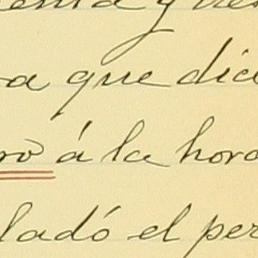 enta y tres
a que dic
ro á la hora
ladó el per